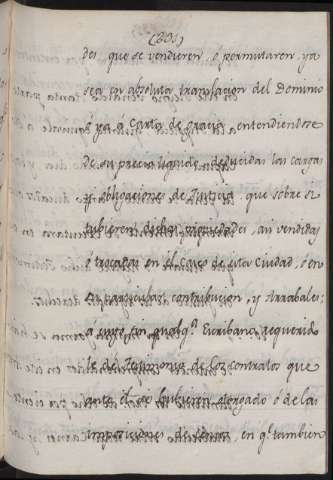 (331)
des que se vendieren, ó permutaren, ya
sea en absoluta translacion del Dominio
ó ya á Carta de gracia, entendiendose
de su precio liquido, deducidas las cargas
y obligaciones de Justicia, que sobre si
tubieren dichas propiedades, asi vendidas
ó trocadas en el Casco de esta Ciudad, ó en
su particular contribucion, y Arrabales;
á cuyo fin qualqª. Escribano, requerido
le de Testimonio de los contratos que
ante el se hubieren otorgado ó de las
imposiciones de en qª. tambien